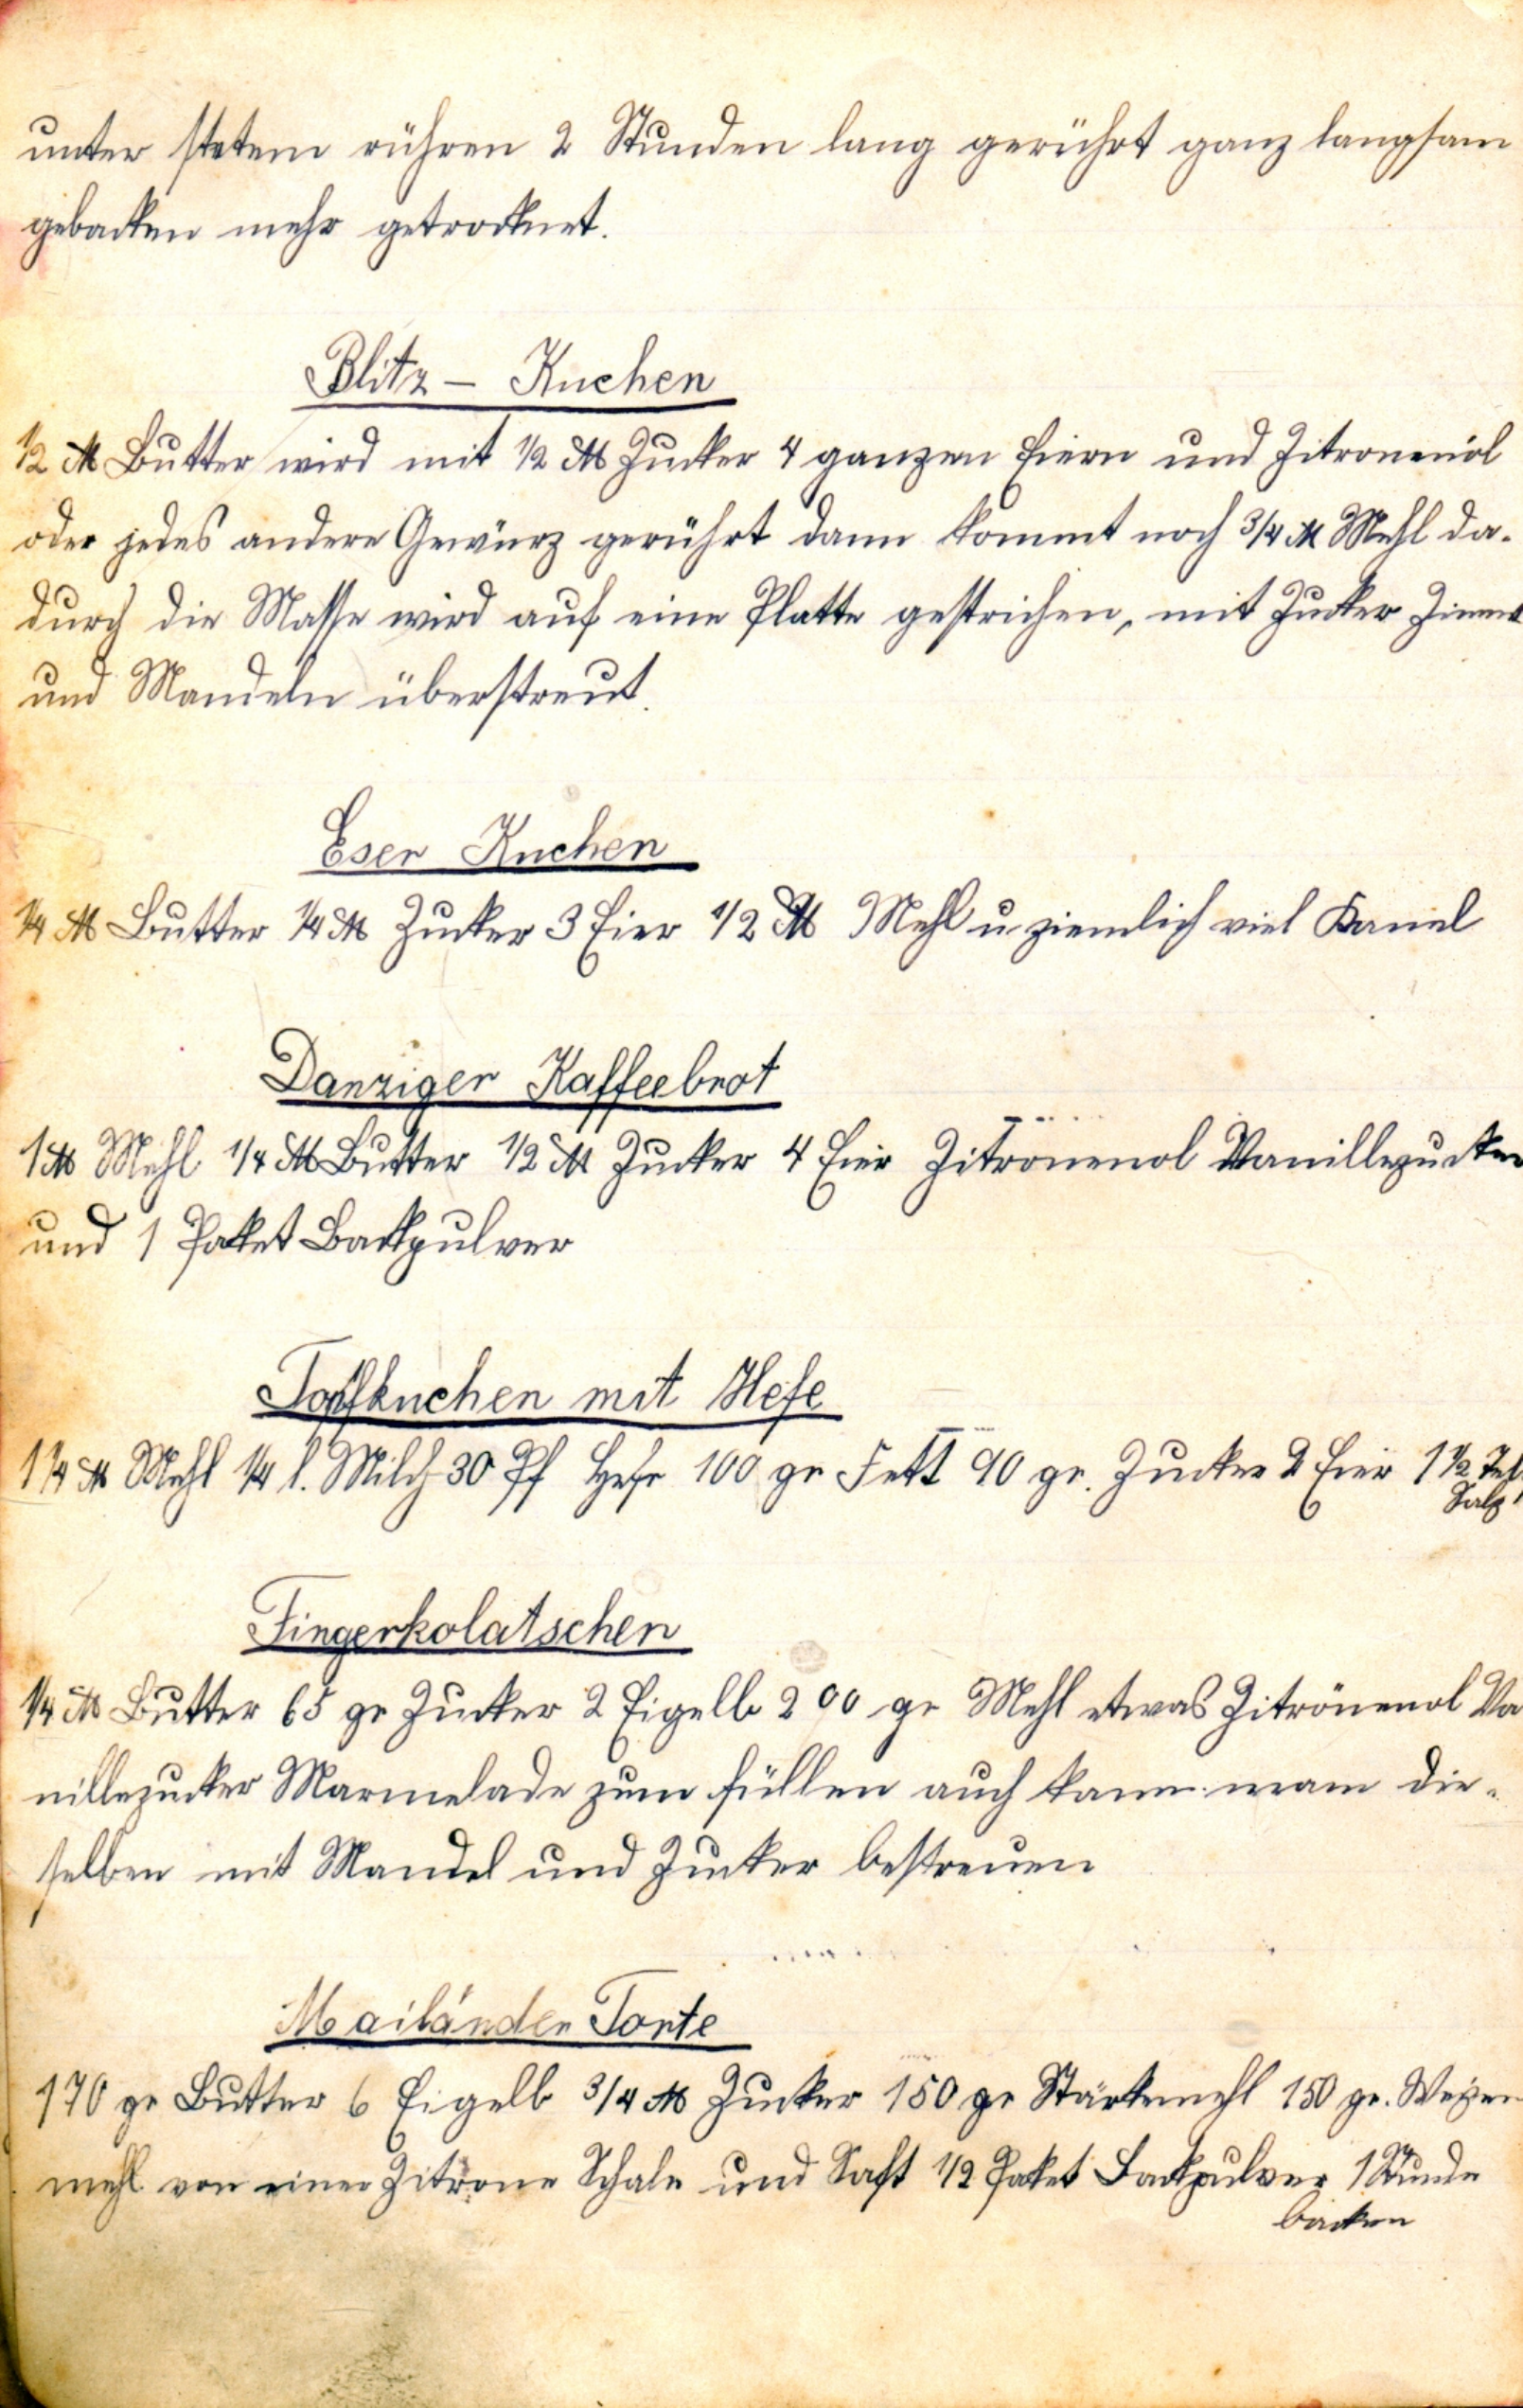 unter stetem rühren 2 Stunden lang gerührt ganz langsam
gebacken mehr getrocknet.
Blitz – Kuchen
1/2 ℔ Butter wird mit 1/2 ℔ Zucker 4 ganzen Eiern und Zitronenöl
oder jedes andere Gewürz gerührt dann kommt noch 3/4 ℔ Mehl da-
durch die Masse wird auf eine Platte gestrichen, mit Zucker Zimmt
und Mandeln überstreut.
Eser Kuchen
1/4 ℔ Butter 1/4 ℔ Zucker 3 Eier 1/2 ℔ Mehl u ziemlich viel Kanel
Danziger Kaffeebrot
1 ℔ Mehl 1/4 ℔ Butter 1/2 ℔ Zucker 4 Eier Zitronenöl Vanillezucker
und 1 Paket Backpulver
Topfkuchen mit Hefe
1 1/4 ℔ Mehl 1/4 l. Milch 30 Pf Hefe 100 gr Fett 90 gr. Zucker 2 Eier 1 1/2 Tel.
Salz
Fingerkolatschen
1/4 ℔ Butter 65 gr Zucker 2 Eigelb 200 gr Mehl etwas Zitronenöl Va
nillezucker Marmelade zum füllen auch kann man die-
selben mit Mandel und Zucker bestreuen
Mailänder Torte
170 gr Butter 6 Eigelb 3/4 ℔ Zucker 150 gr Stärkemehl 150 gr. Weizen
mehl von einer Zitrone Schale und Saft 1/2 Paket Backpulver 1 Stunde
backen